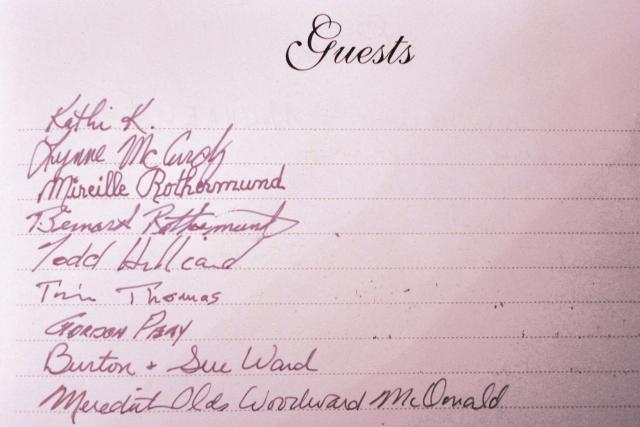 Guests
Kathi K.
Lynne McCurdy
Mireille Rothermund
Bernard Rothermund
Todd Hillcand
Tim Thomas
Gordon
Burton + Sue Ward
Meredith Olds Woodward McDonald